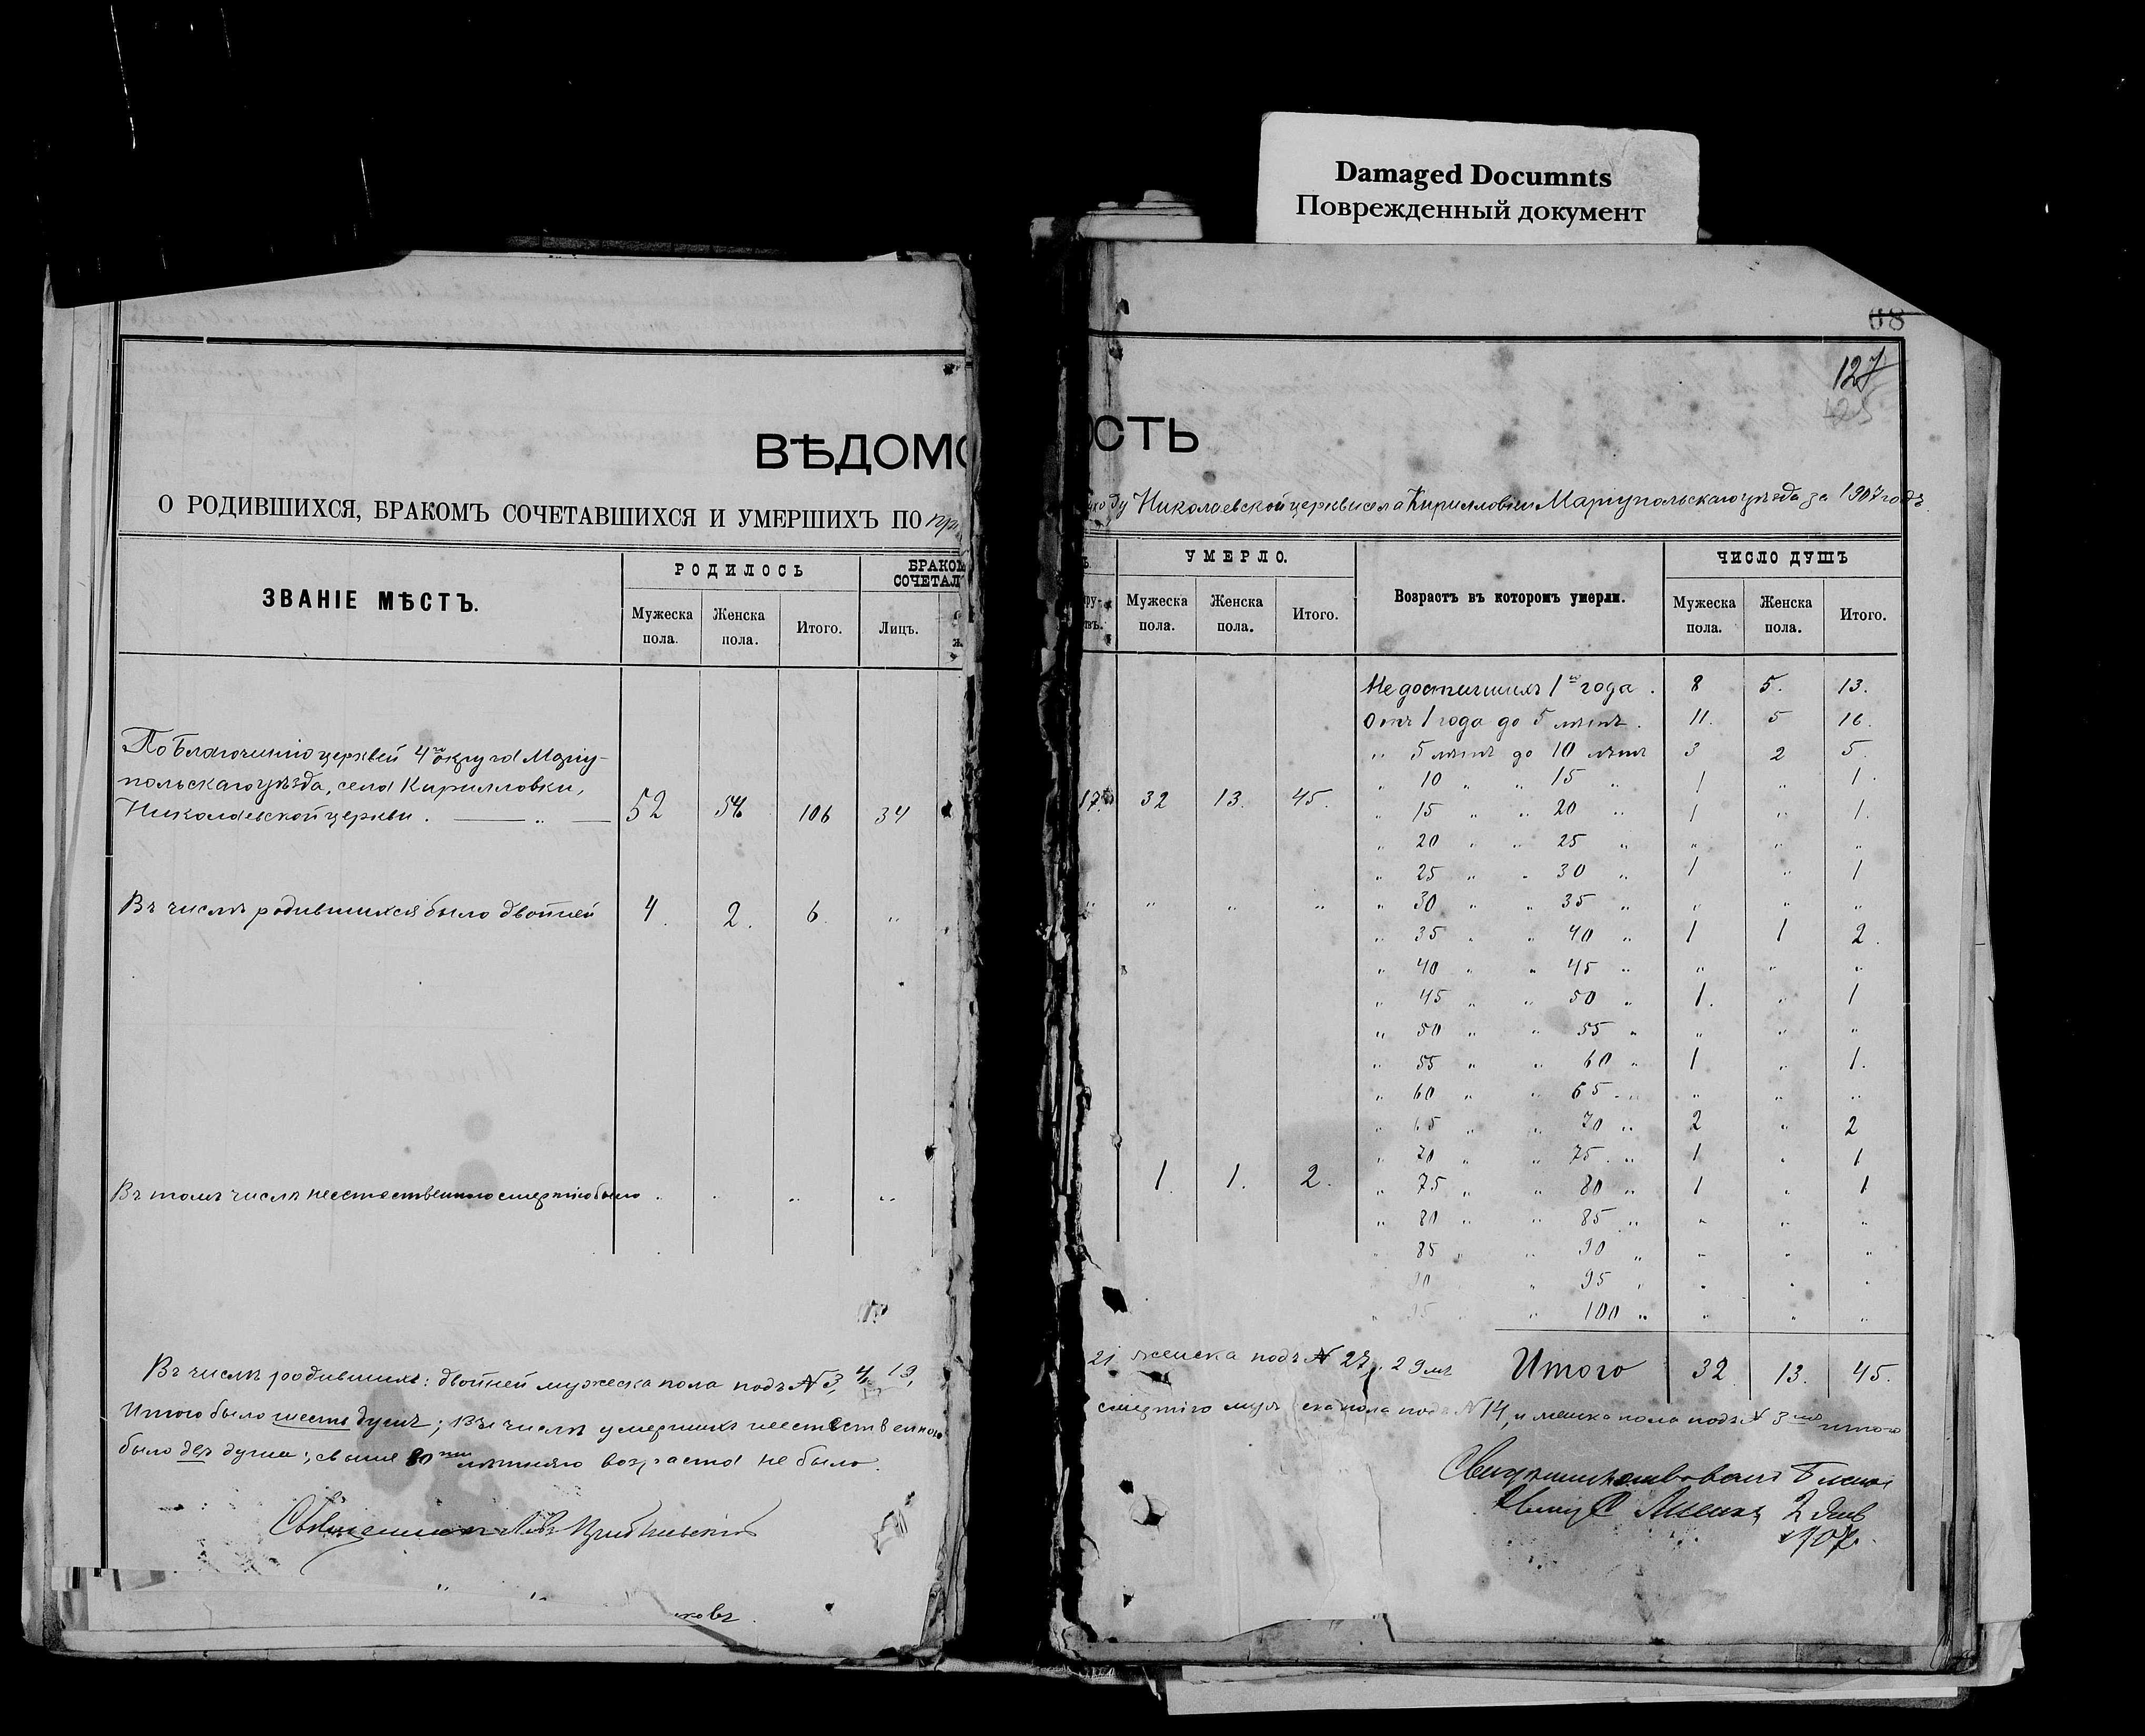 Damaged Documnts
Поврежденный документ
68
127
ВѢДОМОСТЬ
О РОДИВШИХСЯ, БРАКОМЪ СОЧЕТАВШИХСЯ И УМЕРШИХЪ ПО приходу Николаевской церкви села Кирилловки Мариупольскаго уѣзда за 1907 годъ.
ЗВАНІЕ МѢСТЪ.
РОДИЛОСЬ
Мужеска пола.
Женска пола.
Итого.
БРАКОМ
СОЧЕТАЛ
Лицъ.
УМЕРЛО.
Мужеска пола.
Женска пола.
Итого.
Возрастъ въ которомъ умерли.
ЧИСЛО ДУШЪ
Мужеска пола.
Женска пола.
Итого.
По Благочинію церквей 4го округа Мариу-
польскаго уѣзда, села Кирилловки,
Николаевской церкви . — „ — 52 54 106 34 17 32 13. 45.
Въ числѣ родившихся было двойней 4. 2. 6. „ „ „ „ „
Въ томъ числѣ неестественною смертію было „ „ „ „ 1. 1. 2.
Не достигшихъ 1го года . 8 5. 13.
Отъ 1 года до 5 лѣтъ . 11. 5 16.
„ 5 лѣтъ до 10 лѣтъ 3 2 5.
„ 10 „ „ 15 „ 1 „ 1.
„ 15 „ „ 20 „ 1 „ 1.
„ 20 „ „ 25 „ „ „ „
„ 25 „ „ 30 „ 1 „ 1
„ 30 „ „ 35 „ „ „ „
„ 35 „ „ 40 „ 1 1 2.
„ 40 „ „ 45 „ „ „ „
„ 45 „ „ 50 „ 1. „ 1
„ 50 „ „ 55 „ „ „ „
„ 55 „ „ 60 „ 1 „ 1.
„ 60 „ „ 65 „ „ „ „
„ 65 „ „ 70 „ 2 „ 2
„ 70 „ „ 75 „ 1 „ 1
„ 75 „ „ 80 „ 1 „ 1
„ 80 „ „ 85 „ „ „ „
„ 85 „ „ 90 „ „ „ „
„ 90 „ 95 „ „ „ „
„ 95 „ „ 100 „ „ „ „
Итого 32 13. 45.
Въ числѣ родившихъ: двойней мужеска пола подъ № 3, 4, 19, 21 женска подъ № 27, 29мъ
Итого было шесть душъ; въ числѣ умершихъ неестественною смертію мужеска пола подъ № 14, и женска пола подъ № 3 итого
было двѣ души; свыше 80ти лѣтняго возраста не было.
Священникъ
Свидѣтельствовалъ
2 Янв
1907.